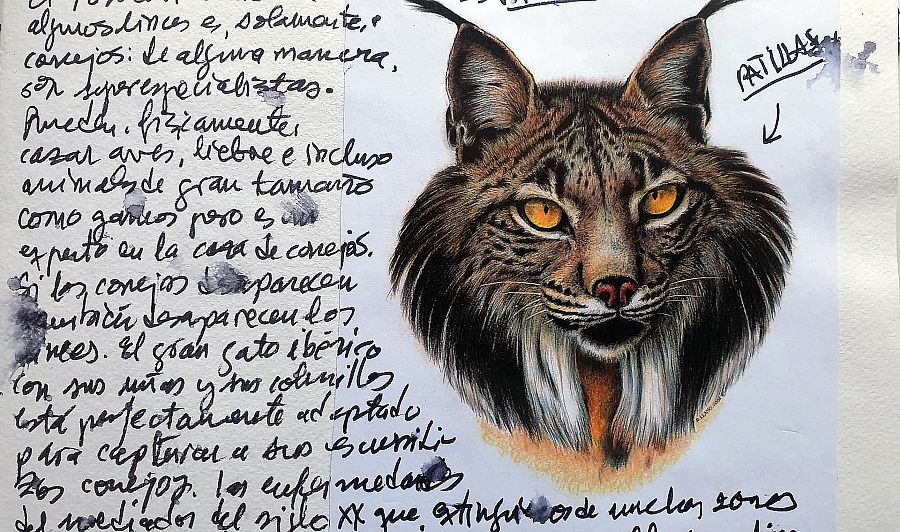 algunos linces es, solamente,
conejos: de alguna manera,
son superespecialistas.
Pueden, físicamente,
cazar aves, liebre e incluso
animales de gran tamaño
como gamos pero es un
experto en la caza de conejos.
Si los conejos desaparecen
también desaparecen los
linces. El gran gato ibérico
con sus uñas y sus colmillos
está perfectamente adaptado
para capturar a sus escurridi
zos conejos. Las enfermedades
de mediados del siglo XX que extinguieron de muchas zonas
PATILLAS